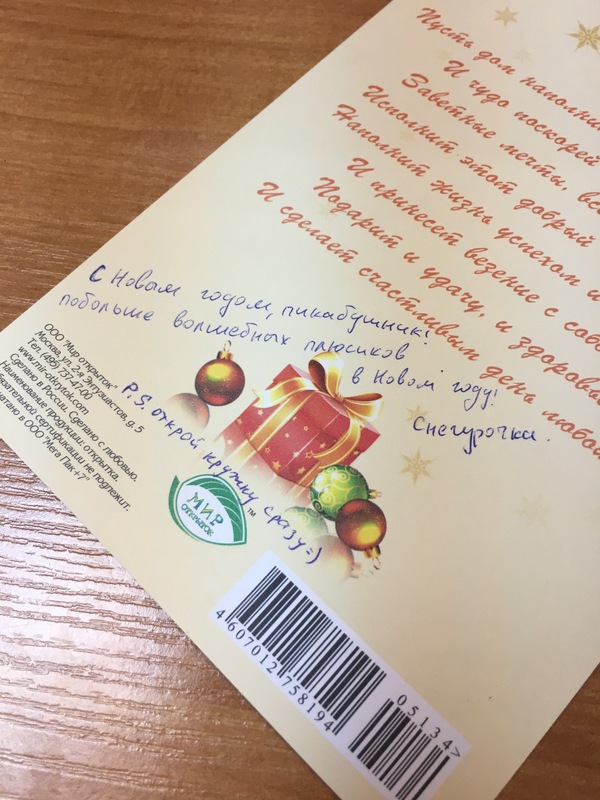 Пусть дом наполни
И чудо поскорей
Заветные мечты, вс
Исполнит этот добрый
Наполнит жизнь успехом и
И принесет везение с соб
Подарит и удачу, и здоровь
И сделает счастливым день любой
С Новым годом, пикабушник!
побольше волшебных плюсиков
в Новом году!
Снегурочка.
P.S. открой кружку сразу =)
ООО "Мир открыток"
Москва, ул. 2-я Энтузиастов, д. 5
Тел. (495) 737-47-00
www.mir-otkrytok.com
Сделано в России. Сделано с любовью.
Наименование продукции: открытка.
бязательной сертификации не подлежит.
чатано в ООО "Мега Пак +7"
МИР
ОТКРЫТОК
TM
4 607012 758194
05134>